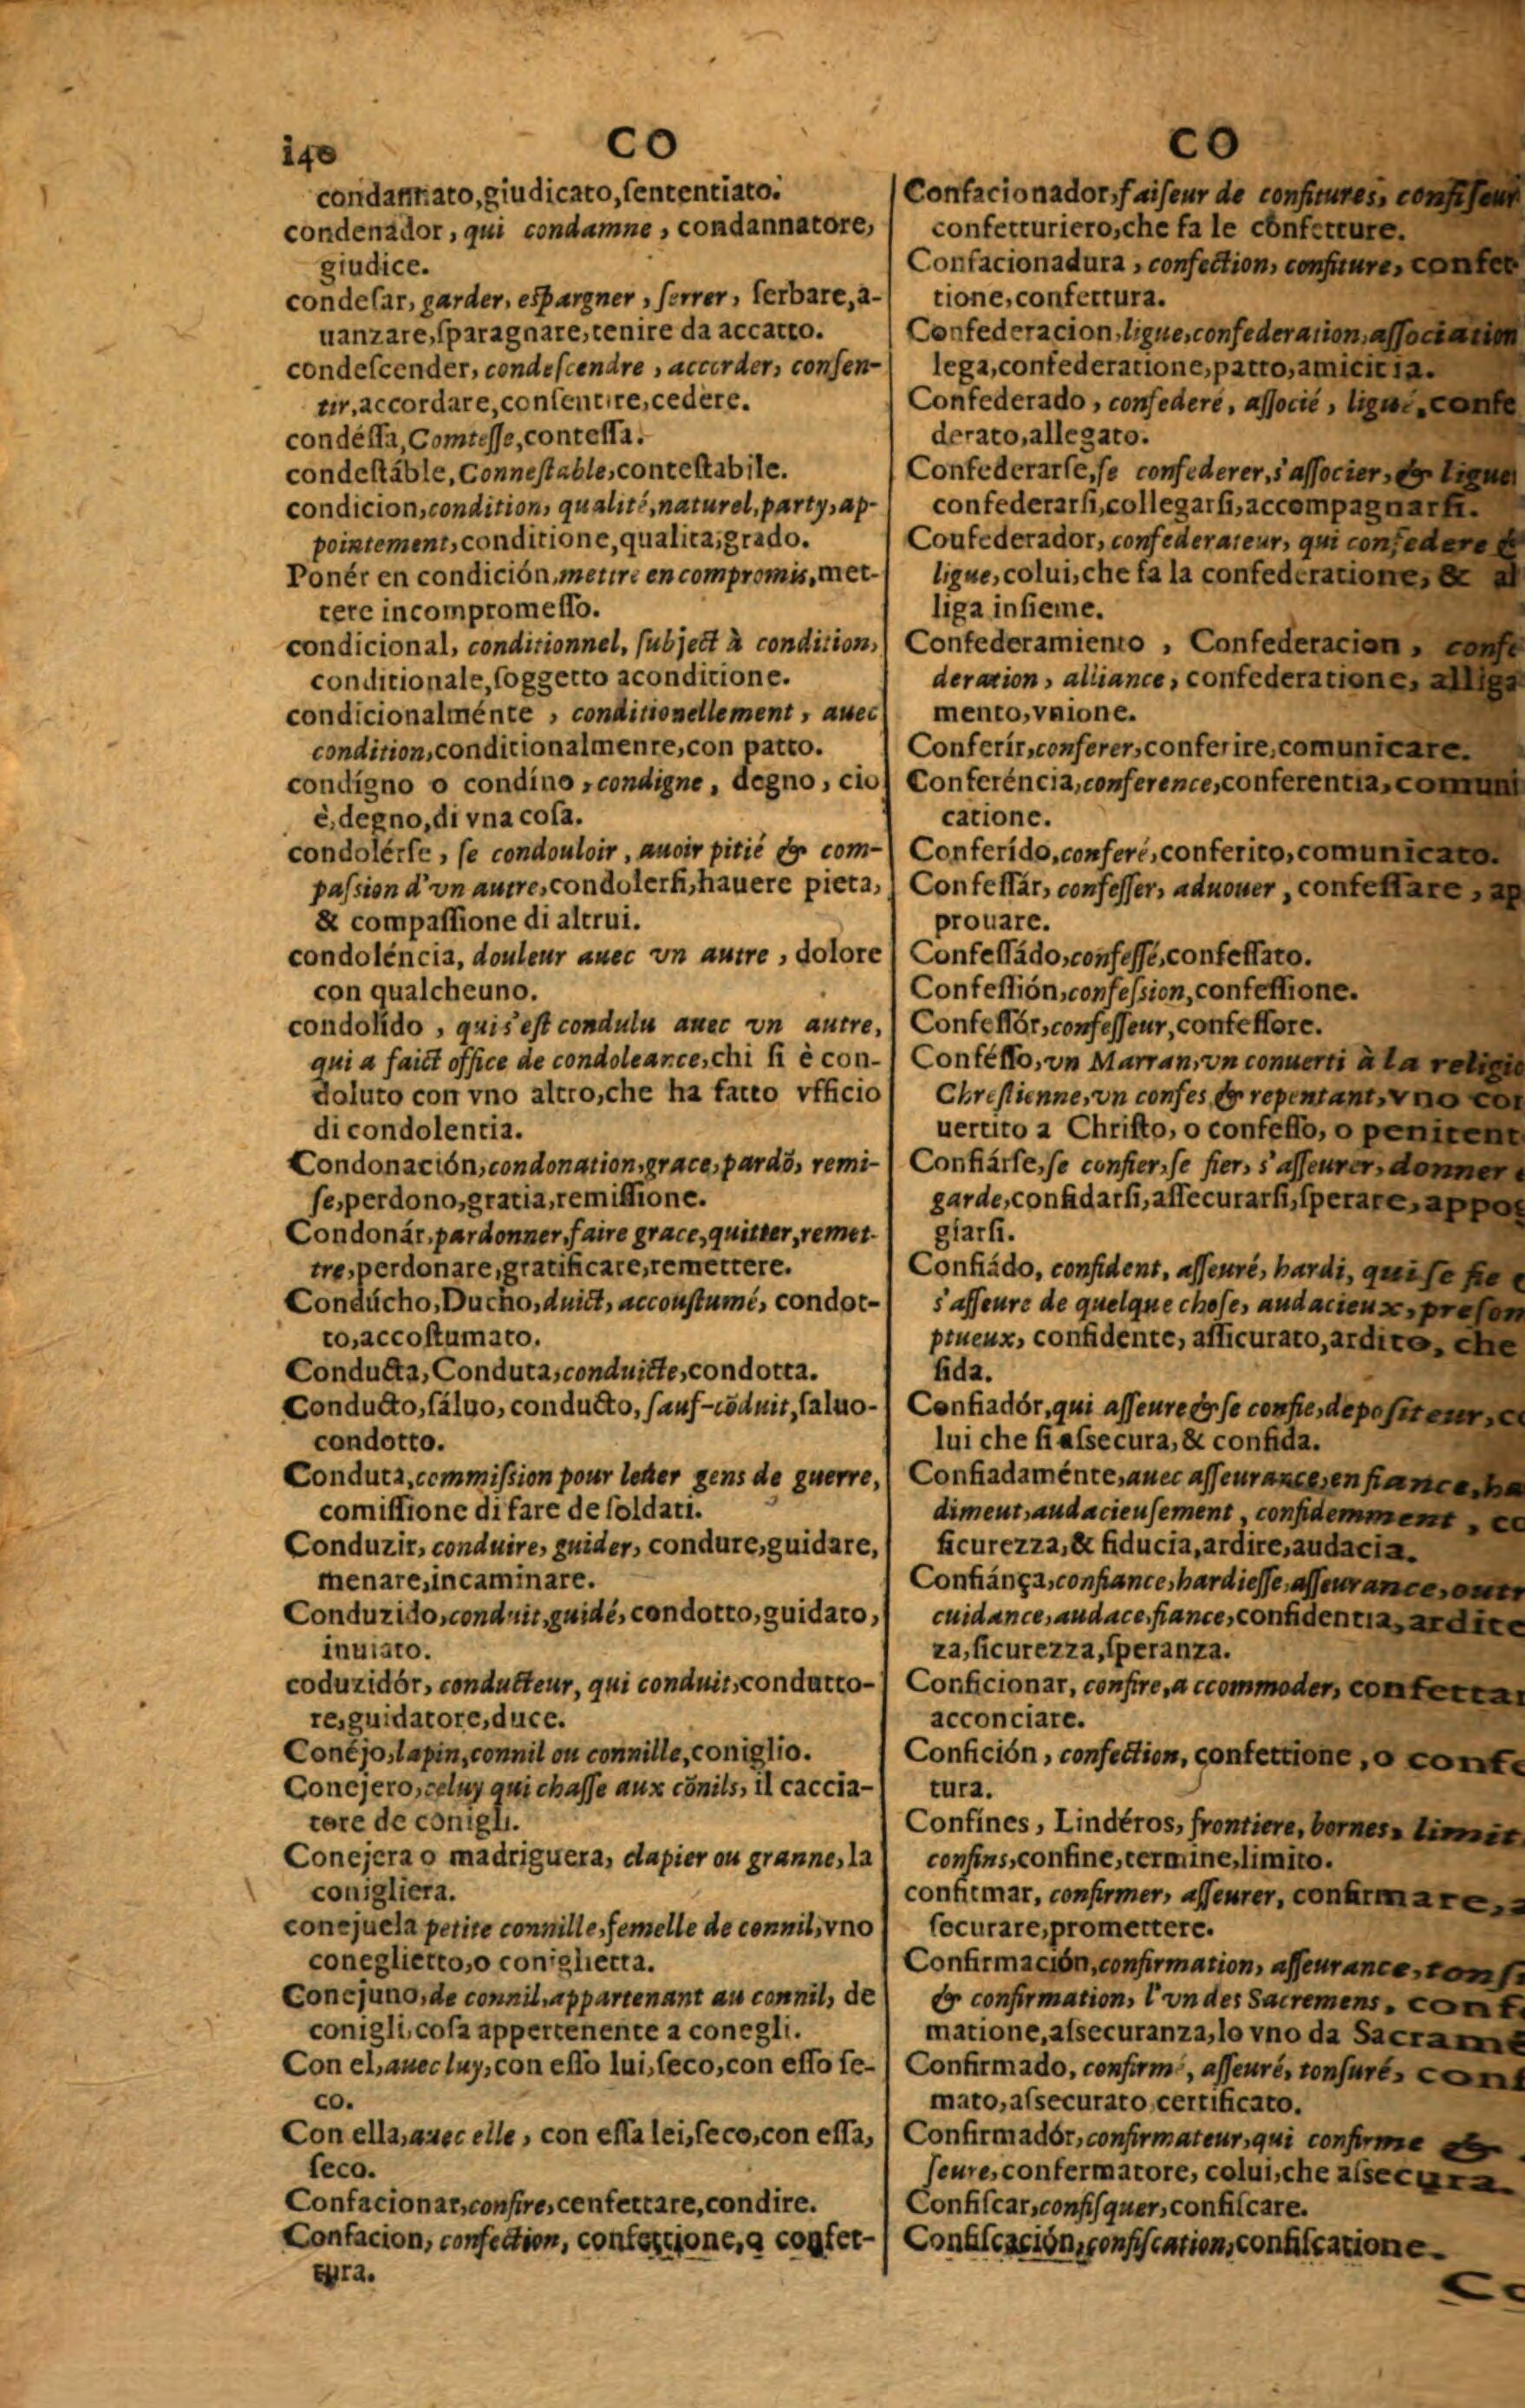 140 CO
condannato,giudicato,ſententiato.
condenador, qui condamne, condannatore,
giudice.
condeſar, garder, eſpargner, ſerrer, ſerbare,a-
uanzare,ſparagnare,tenire da accatto.
condeſcender, condeſcendre, accorder, conſen-
tir,accordare,conſentire,cedere.
condéſſa,Comteſſe,conteſſa.
condeſtáble,Conneſtable,conteſtabile.
condicion,condition, qualité,naturel,party,ap-
pointement,conditione,qualita,grado.
Ponér en condición,mettre en compromis,met-
tere incompromeſſo.
condicional, conditionnel, ſubject à condition,
conditionale,ſoggetto aconditione.
condicionalménte, conditionellement, auec
condition,conditionalmenre,con patto.
condígno o condíno, condigne, degno, cio
è,degno,di vna coſa.
condolérſe, ſe condouloir, auoir pitié & com-
paſsion d'vn autre,condolerſi,hauere pieta,
& compaſſione di altrui.
condoléncia, douleur auec vn autre, dolore
con qualcheuno.
condolído, qui s'eſt condulu auec vn autre,
qui a faict office de condoleance,chi ſi è con-
doluto con vno altro,che ha fatto vfficio
di condolentia.
Condonación,condonation,grace,pardõ, remi-
ſe,perdono,gratia,remiſſione.
Condonár,pardonner,faire grace,quitter,remet-
tre,perdonare,gratificare,remettere.
Condúcho,Ducho,duict, accouſtumé, condot-
to,accoſtumato.
Conducta,Conduta,conduicte,condotta.
Conducto,ſáluo,conducto,ſauf-cõduit,ſaluo-
condotto.
Conduta,commiſsion pour leuer gens de guerre,
comiſſione di fare de ſoldati.
Conduzir, conduire, guider, condure,guidare,
menare,incaminare.
Conduzido,conduit,guidé, condotto,guidato,
inuiato.
coduzidór, conducteur, qui conduit,condutto-
re,guidatore,duce.
Conéjo,lapin,connil ou connille,coniglio.
Conejero,celuy qui chaſſe aux cõnils, il caccia-
tore de conigli.
Conejera o madriguera, clapier ou granne,la
conigliera.
conejuela petite connille,femelle de connil,vno
coneglietto,o coniglietta.
Conejuno,de connil,appartenant au connil, de
conigli,coſa appertenente a conegli.
Con el,auec luy,con eſſo lui,ſeco,con eſſo ſe-
co.
Con ella,auec elle, con eſſa lei,ſeco,con eſſa,
ſeco.
Confacionar,confire,cenfettare,condire.
Confacion, confection, confettione,o confet-
tura.
CO
Confacionador,faiſeur de confitures, confiſeur
confetturiero,che fa le confetture.
Confacionadura, confection, confiture, confet-
tione,confettura.
Confederacion,ligue,confederation,aſſociation
lega,confederatione,patto,amicitia.
Confederado, confederé, aſſocié, ligué,confe
derato,allegato.
Confederarſe,ſe confederer,s'aſſocier,& ligue
confederarſi,collegarſi,accompagnarſi.
Coufederador, confederateur, qui confedere &
ligue,colui,che fa la confederatione, & al
liga inſieme.
Confederamiento, Confederacion, confe
deration, alliance, confederatione, alliga
mento,vnione.
Conferír,conferer,conferire,comunicare.
Conferéncia,conference,conferentia,comuni
catione.
Conferído,conferé,conferito,comunicato.
Confeſſár, confeſſer, aduouer, confeſſare, ap
prouare.
Confeſſádo,confeſſé,confeſſato.
Confeſſión,confeſsion,confeſſione.
Confeſſór,confeſſeur,confeſſore.
Conféſſo,vn Marran,vn conuerti à la religio
Chreſtienne,vn confes & repentant,vno con
uertito a Chriſto, o confeſſo, o penitent
Confiárſe,ſe confier,ſe fier, s'aſſeurer, donner
garde,confidarſi,aſſecurarſi,ſperare, appog
giarſi.
Confiádo, confident, aſſeuré, hardi, qui ſe fie
s'aſſeure de quelque choſe, audacieux, preſom
ptueux, confidente, aſſicurato,ardito, che
fida.
Confiadór,qui aſſeure & ſe confie,depoſiteur,co
lui che ſi aſsecura, & confida.
Confiadaménte,auec aſſeurance,en fiance,ha
diment,audacieuſement, confidemment, co
ſicurezza,& fiducia,ardire,audacia.
Confiánça,confiance,hardieſſe,aſſeurance,outr
cuidance,audace,fiance,confidentia, ardite
za,ſicurezza,ſperanza.
Conficionar, confire,accommoder, confettar
acconciare.
Confición, confection, confettione, o confe
tura.
Confínes, Lindéros, frontiere, bornes, limit
confins,confine,termine,limito.
confirmar, confirmer, aſſeurer, confirmare, a
ſecurare,promettere.
Confirmación,confirmation, aſſeurance,tonſu
& confirmation, l'vn des Sacremens, conf
matione,aſsecuranza,lo vno da Sacrame
Confirmado, confirmé, aſſeuré, tonſuré, conf
mato,aſsecurato certificato.
Confirmadór,confirmateur,qui confirme &
ſeure,confermatore, colui,che aſsecura.
Confiſcar,confiſquer,confiſcare.
Confiſcación,confiſcation,confiſcatione.
Co